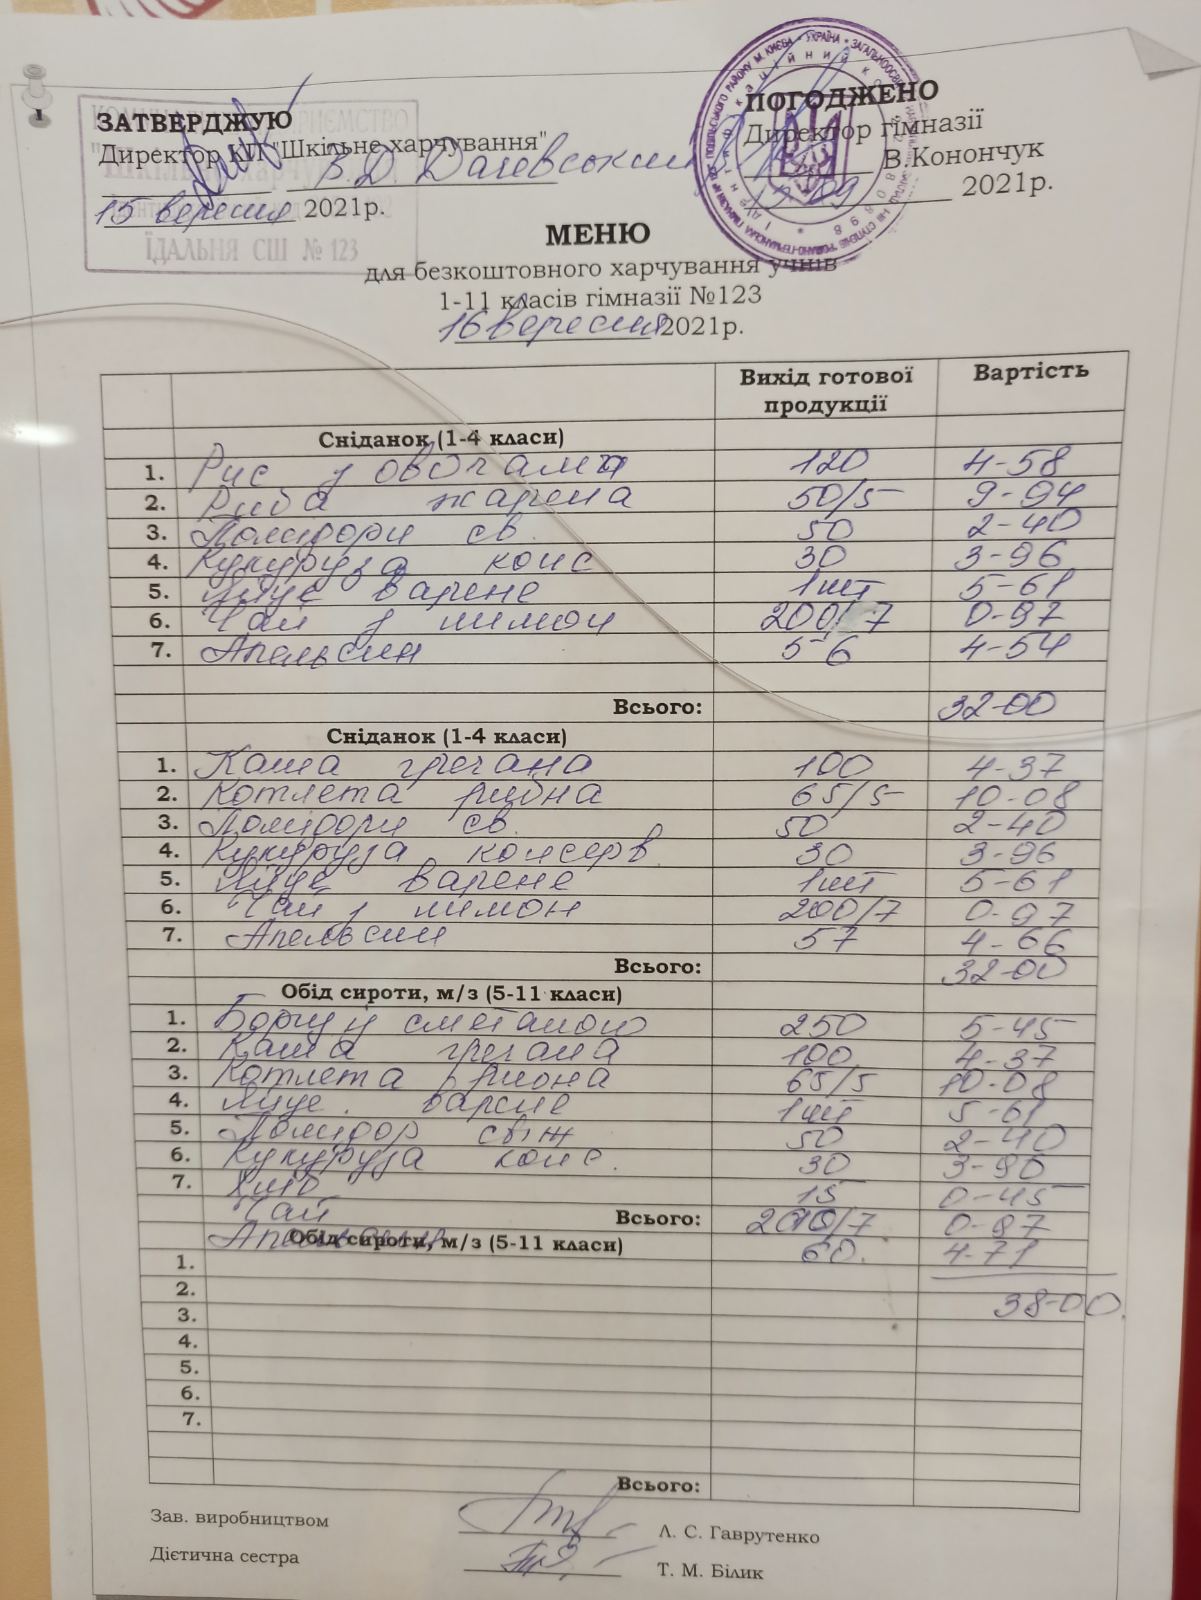 ЗАТВЕРДЖУЮ
Директор КП "Шкільне харчування"
В.Д. Дачевський
15 вересня 2021р.
КОМУНАЛЬНЕ ПІДПРИЄМСТВО
"Шкільне харчування"
ЇДАЛЬНЯ СШ № 123
ПОГОДЖЕНО
Директор гімназії
В.Конончук
15.09 2021р.
МЕНЮ
для безкоштовного харчування учнів
1-11 класів гімназії №123
16 вересня 2021р.
Вихід готової продукції Вартість
Сніданок (1-4 класи)
1. Рис з овочами 120 4-58
2. Риба жарена 50/5 9-94
3. Помідори св. 50 2-40
4. Кукуруза конс 30 3-96
5. Яйце варене 1шт 5-61
6. Чай з лимон 200/7 0-97
7. Апельсин 56 4-54
Всього: 32-00
Сніданок (1-4 класи)
1. Каша гречана 100 4-37
2. Котлета рибна 65/5 10-08
3. Помідори св. 50 2-40
4. Кукуруза консерв 30 3-96
5. Яйце варене 1шт 5-61
6. Чай з лимон 200/7 0-97
7. Апельсин 57 4-66
Всього: 32-00
Обід сироти, м/з (5-11 класи)
1. Борщ зі сметаною 250 5-45
2. Каша гречана 100 4-37
3. Котлета рибна 65/5 10-08
4. Яйце варене 1шт 5-61
5. Помідор свіж 50 2-40
6. Кукуруза конс. 30 3-90
7. Хліб 15 0-45
Чай Всього: 200/7 0-97
Апельсин 60. 4-71
Обід сироти, м/з (5-11 класи)
1.
2. 38-00.
3.
4.
5.
6.
7.
Всього:
Зав. виробництвом Л. С. Гаврутенко
Дієтична сестра Т. М. Білик